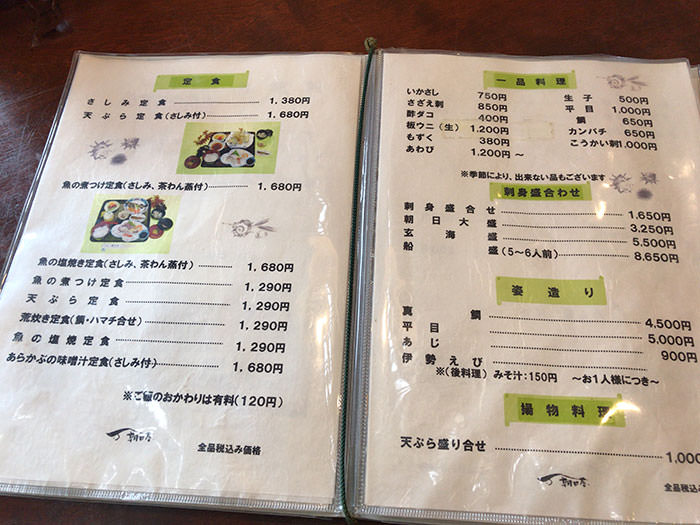 定食
さしみ定食 1,380円
天ぷら定食(さしみ付) 1,680円
魚の煮つけ定食(さしみ、茶わん蒸付) 1,680円
魚の塩焼き定食(さしみ、茶わん蒸付) 1,680円
魚の煮つけ定食 1,290円
天ぷら定食 1,290円
荒炊き定食(鯛・ハマチ合せ) 1,290円
魚の塩焼定食 1,290円
あらかぶの味噌汁定食(さしみ付) 1,680円
※ご飯のおかわりは有料(120円)
全品税込み価格
一品料理
いかさし 750円
さざえ刺 850円
酢ダコ 400円
板ウニ(生) 1,200円
もずく 380円
あわび 1,200円~
生子 500円
平目 1,000円
鯛 650円
カンパチ 650円
こうかい刺1,000円
※季節により、出来ない品もございます
刺身盛合わせ
刺身盛合せ 1,650円
朝日大盛 3,250円
玄海盛 5,500円
船盛(5~6人前) 8,650円
姿造り
真鯛 4,500円
平目 5,000円
あじ 900円
伊勢えび
※(後料理)みそ汁:150円 ~お1人様につき~
揚物料理
天ぷら盛り合せ 1,000
全品税込み